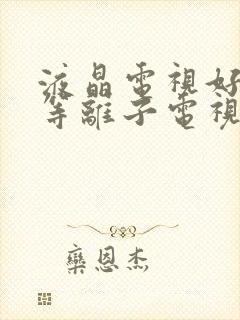 液晶電視好
等離子電視
欒恩杰